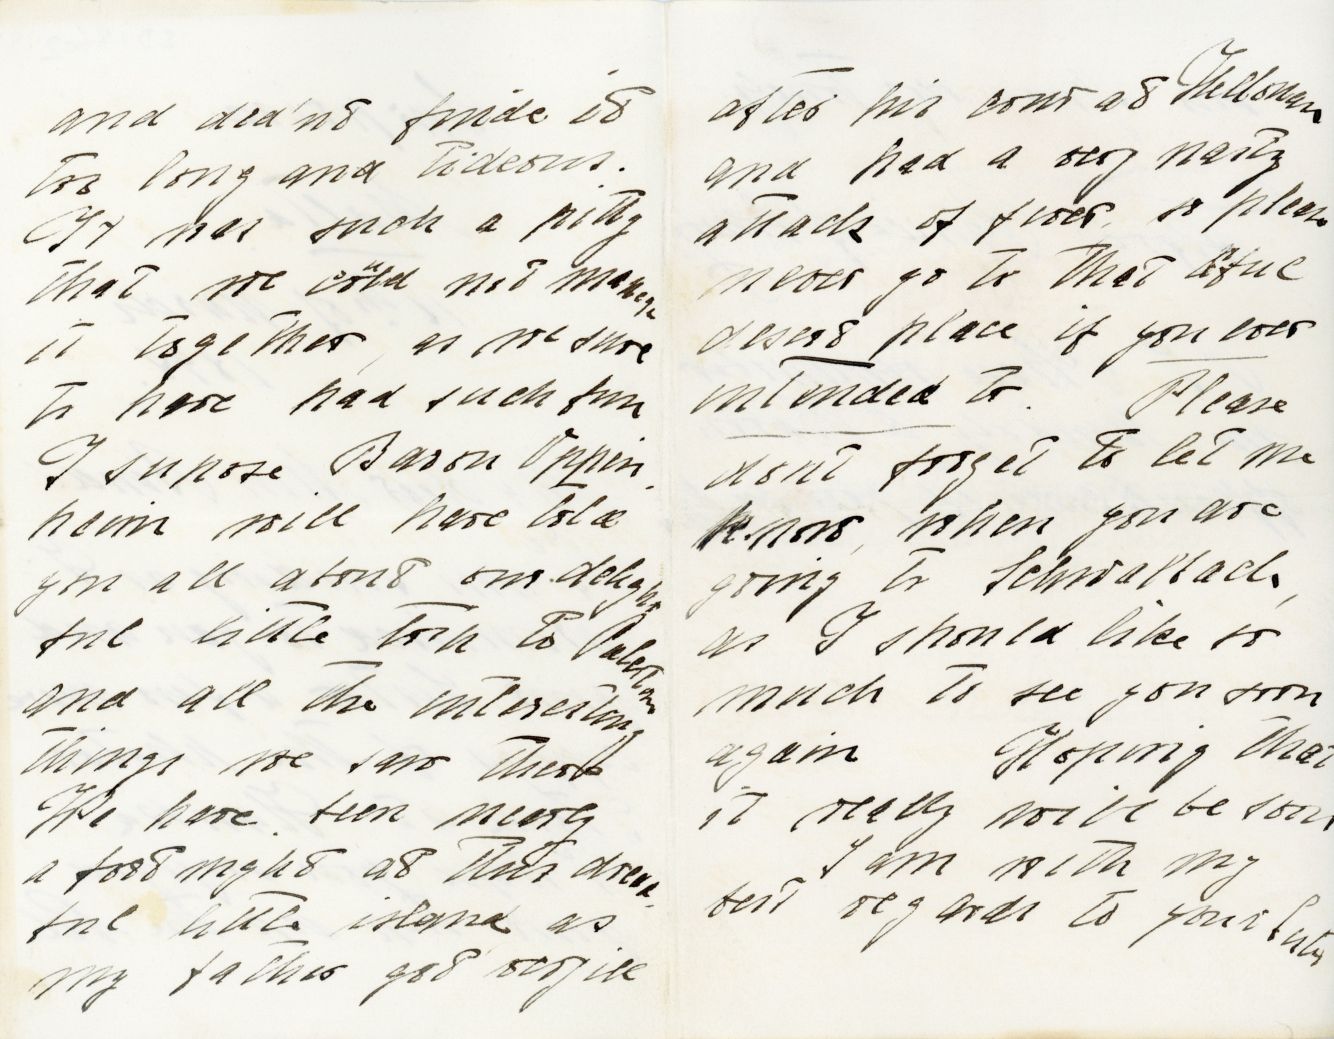 and did'nt finde it
too long and tideous.
It was such a pitty
that we could not manage
it together, as we sure
to have had such fun
I supose Baron Oppin-
heim will have told
you all about our deligh
ful little torn to Palestine
and all the interesting
things we saw there
We have been nearly
a fortnight at this dread-
ful little island as
my father got very ill
after his
and had a very nasty
attack of fever, so please
never go to that
desert place if you ever
intended to. Please
dont forget to let me
know, when you are
going to Schwalbach,
as I should like so
much to see you soon
again Hoping that
it really will be soon
I am with my
best regards to your